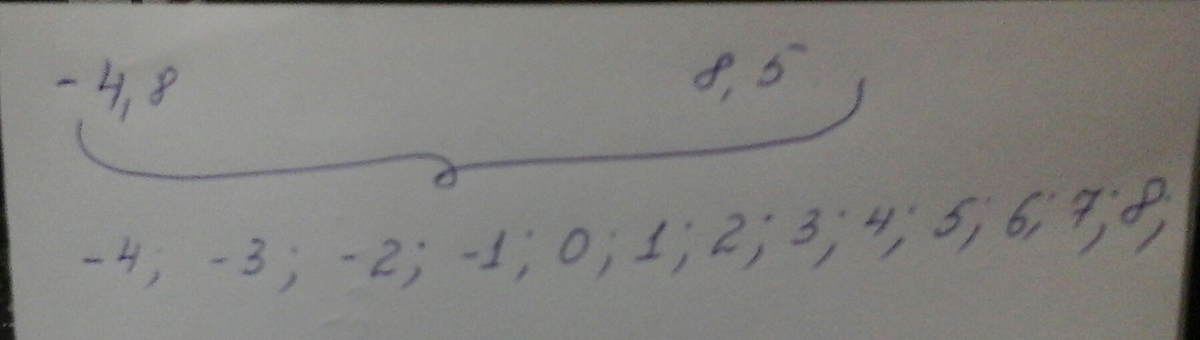 -4,8 8,5
-4; -3; -2; -1; 0; 1; 2; 3; 4; 5; 6; 7; 8;